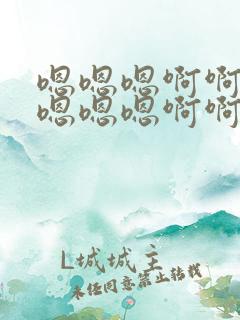 嗯嗯嗯啊啊
嗯嗯嗯啊啊
L城城主
未经同意禁止转载